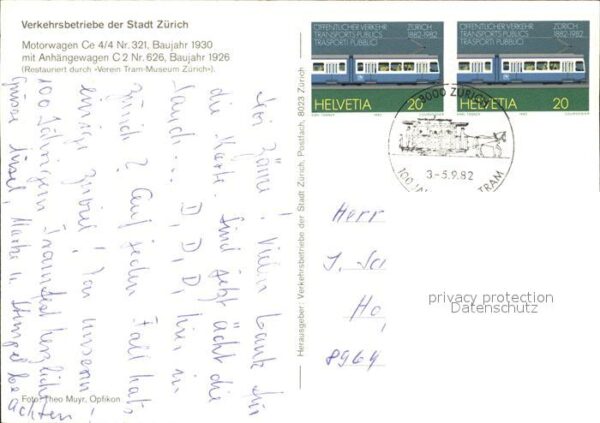 Verkehrsbetriebe der Stadt Zürich
Motorwagen Ce 4/4 Nr. 321, Baujahr 1930
mit Anhängewagen C 2 Nr. 626, Baujahr 1926
(Restauriert durch «Verein Tram-Museum Zürich»).
ÖFFENTLICHER VERKEHR ZÜRICH
TRANSPORTS PUBLICS 1882-1982
TRASPORTI PUBBLICI
HELVETIA 20
ÖFFENTLICHER VERKEHR ZÜRICH
TRANSPORTS PUBLICS 1882-1982
TRASPORTI PUBBLICI
HELVETIA 20
8000 ZÜRICH
3.-5.9.82
100 TRAM
Hoi Zäme! Vielen Dank für
die Karte. Sind jetzt ächt die
D, D, D, hier in
Zürich? Auf jeden Fall hat's
einige zuviel! Zu unserm
100 Jährigen Tramfest herzliche
Grüsse Marke u. Stempel beachten
Herausgeber: Verkehrsbetriebe der Stadt Zürich, Postfach, 8023 Zürich
Herr
J.
Ho,
8964
privacy protection
Datenschutz
Foto: Theo Muyr, Opfikon